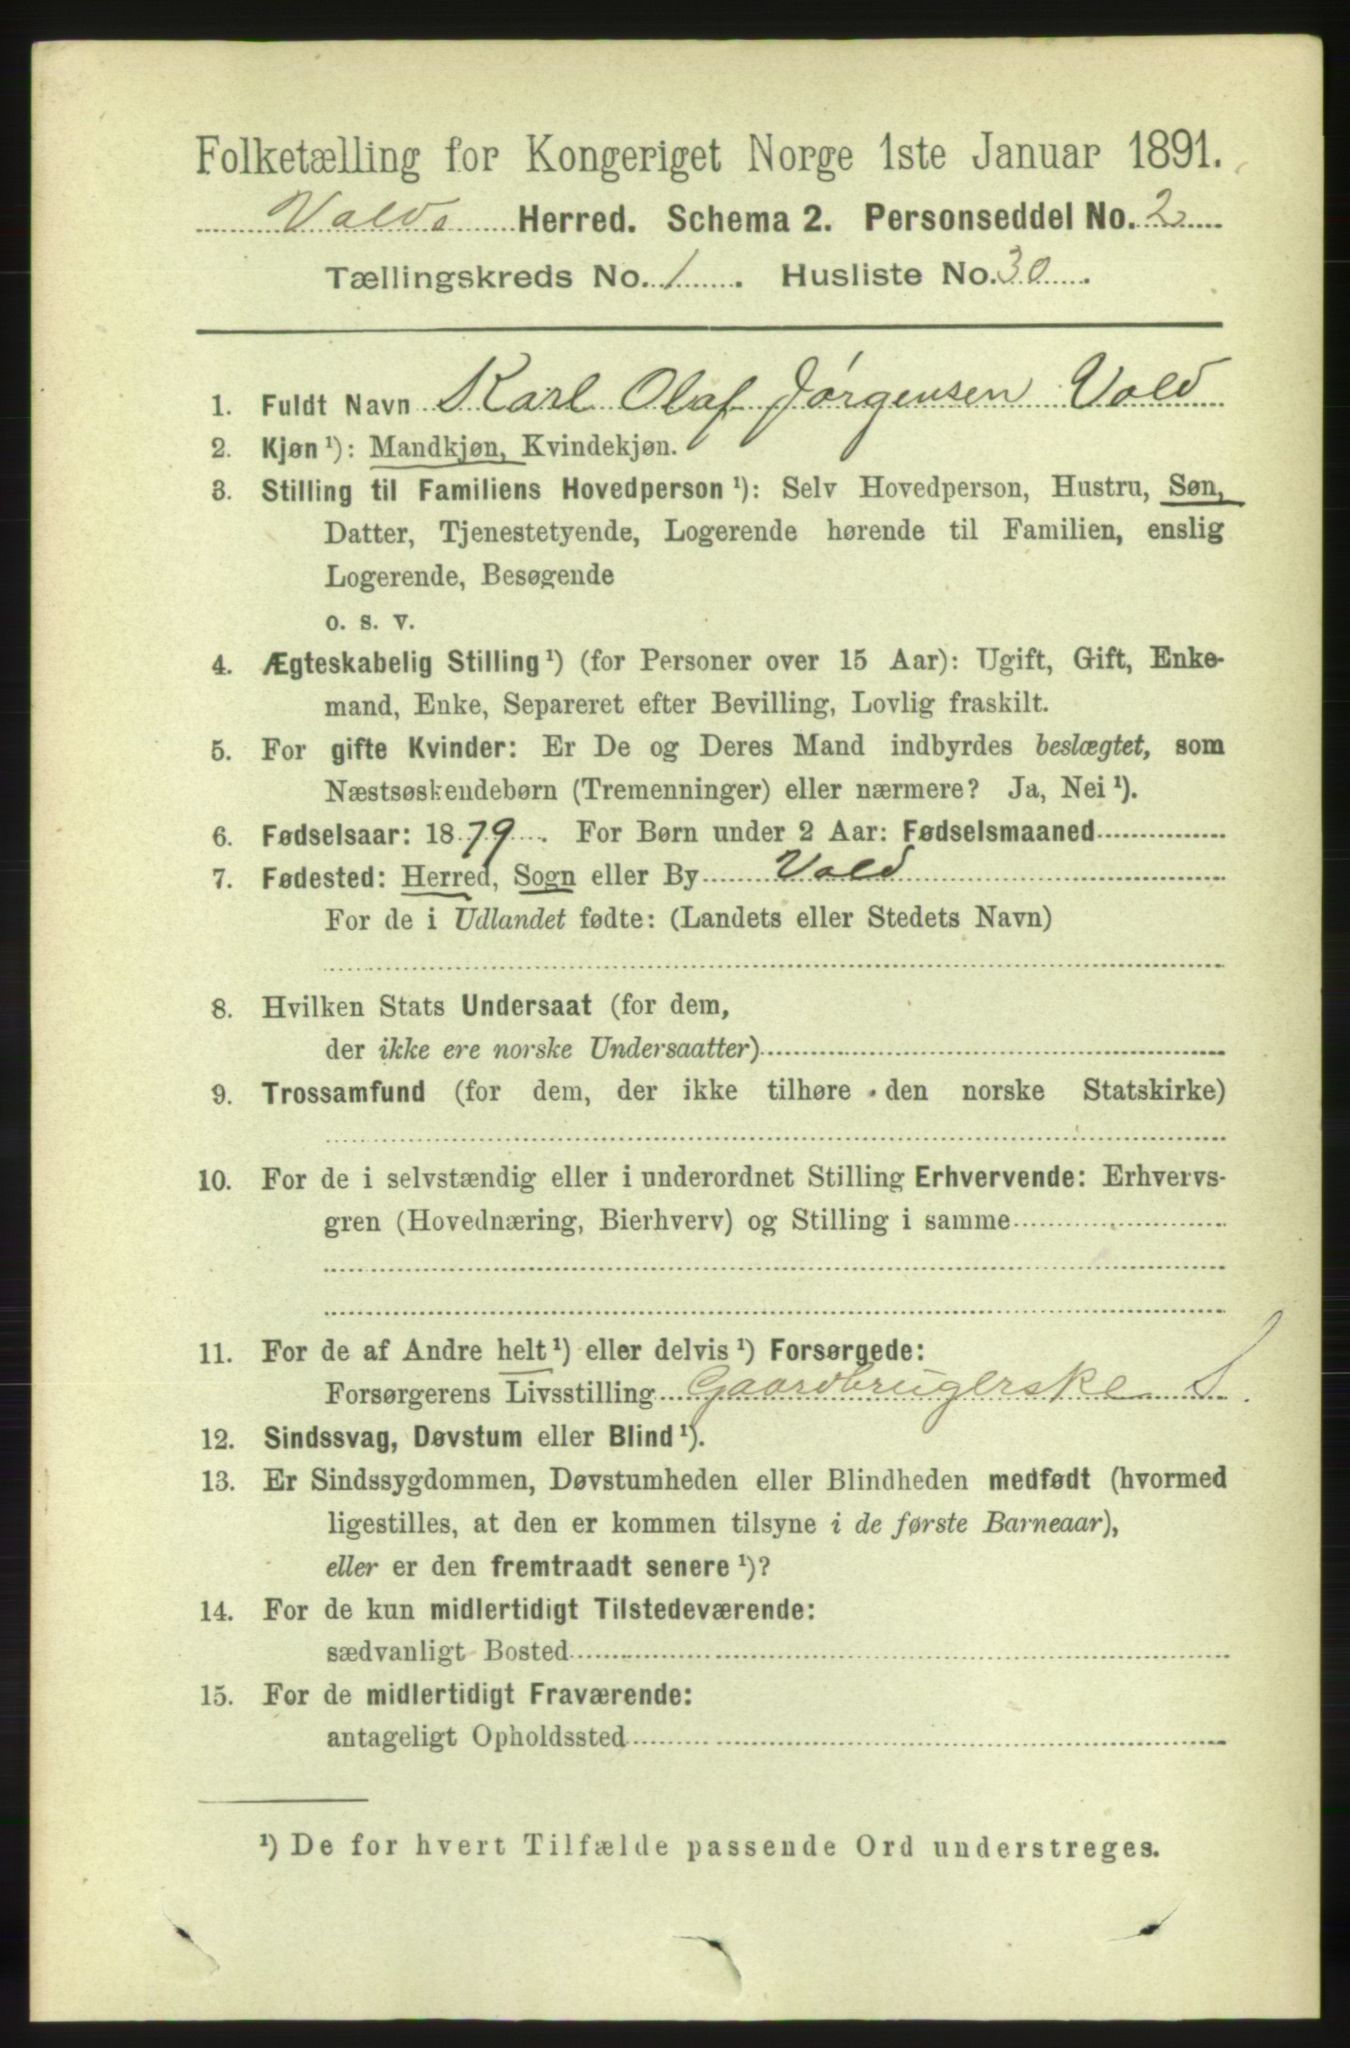 Folketælling for Kongeriget Norge 1ste Januar 1891.
Volds Herred. Schema 2. Personseddel No. 2
Tællingskreds No. 1. Husliste No. 30.
1. Fuldt Navn Karl Olaf Jørgensen Vold
2. Kjøn ¹): Mandkjøn, Kvindekjøn.
3. Stilling til Familiens Hovedperson ¹): Selv Hovedperson, Hustru, Søn,
Datter, Tjenestetyende, Logerende hørende til Familien, enslig
Logerende, Besøgende
o. s. v.
4. Ægteskabelig Stilling ¹) (for Personer over 15 Aar): Ugift, Gift, Enke-
mand, Enke, Separeret efter Bevilling, Lovlig fraskilt.
5. For gifte Kvinder: Er De og Deres Mand indbyrdes beslægtet, som
Næstsøskendebørn (Tremenninger) eller nærmere? Ja, Nei ¹).
6. Fødselsaar: 1879. For Børn under 2 Aar: Fødselsmaaned
7. Fødested: Herred, Sogn eller By Vold
For de i Udlandet fødte: (Landets eller Stedets Navn)
8. Hvilken Stats Undersaat (for dem,
der ikke ere norske Undersaatter)
9. Trossamfund (for dem, der ikke tilhøre den norske Statskirke)
10. For de i selvstændig eller i underordnet Stilling Erhvervende: Erhvervs-
gren (Hovednæring, Bierhverv) og Stilling i samme
11. For de af Andre helt ¹) eller delvis ¹) Forsørgede:
Forsørgerens Livsstilling Gaardbrugerske S.
12. Sindssvag, Døvstum eller Blind ¹).
13. Er Sindssygdommen, Døvstumheden eller Blindheden medfødt (hvormed
ligestilles, at den er kommen tilsyne i de første Barneaar),
eller er den fremtraadt senere ¹)?
14. For de kun midlertidigt Tilstedeværende:
sædvanligt Bosted
15. For de midlertidigt Fraværende:
antageligt Opholdssted
¹) De for hvert Tilfælde passende Ord understreges.